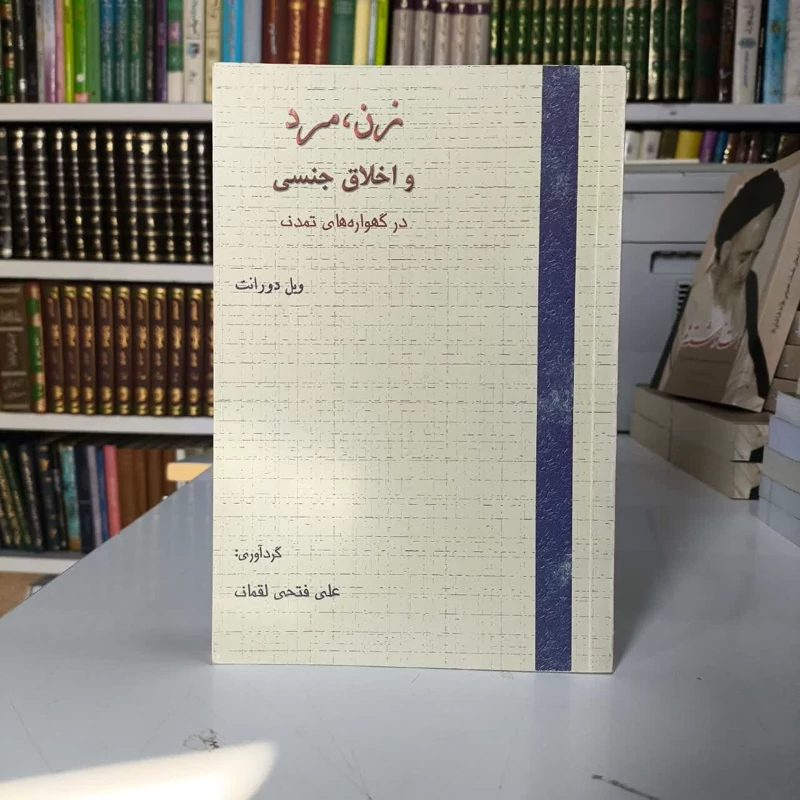 زن، مرد
و اخلاق جنسی
در گهواره‌های تمدن
ویل دورانت
گردآوری:
علی فتحی لقمان